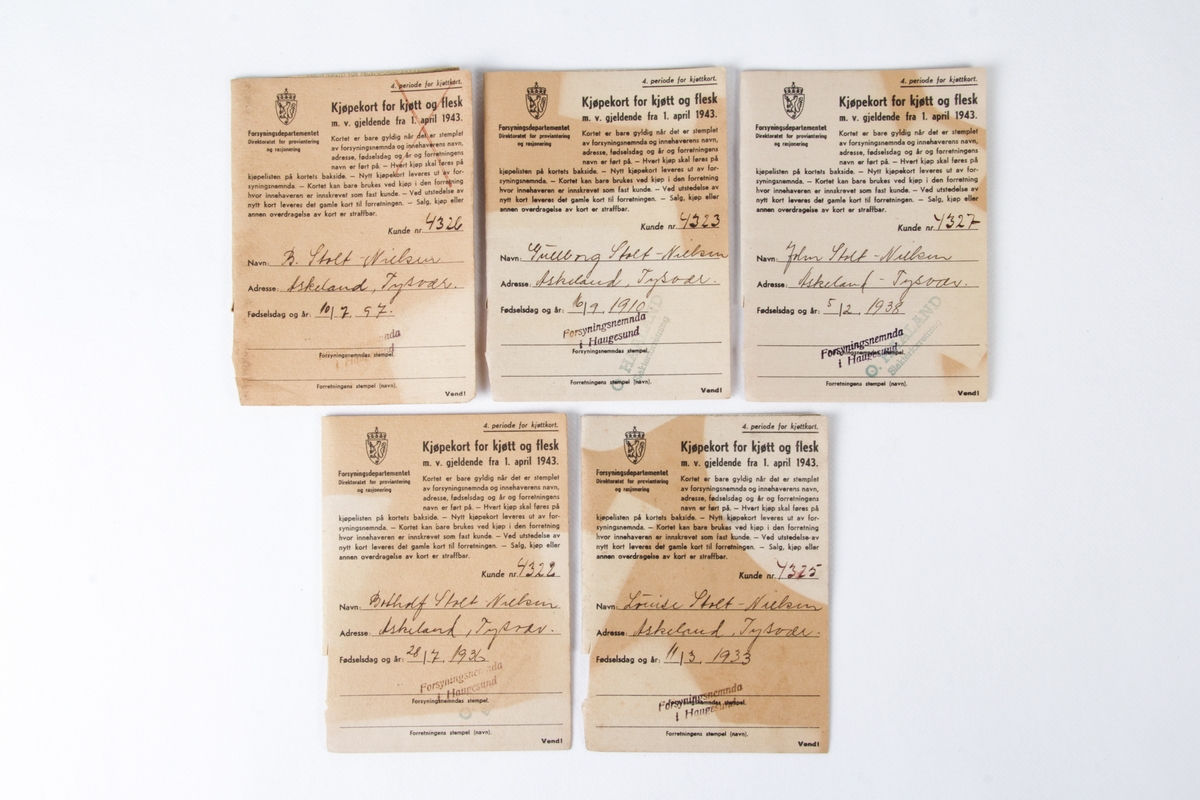 4. periode for kjøttkort.
Kjøpekort for kjøtt og flesk
m. v. gjeldende fra 1. april 1943.
Forsyningsdepartementet
Direktoratet for proviantering
og rasjonering
Kortet er bare gyldig når det er stemplet
av forsyningsnemnda og innehaverens navn,
adresse, fødselsdag og år og forretningens
navn er ført på. — Hvert kjøp skal føres på
kjøpelisten på kortets bakside. — Nytt kjøpekort leveres ut av for-
syningsnemnda. — Kortet kan bare brukes ved kjøp i den forretning
hvor innehaveren er innskrevet som fast kunde. — Ved utstedelse av
nytt kort leveres det gamle kort til forretningen. — Salg, kjøp eller
annen overdragelse av kort er straffbar.
Kunde nr. 4326
Navn: B. Stolt-Nielsen
Adresse: Askeland, Tysvær.
Fødselsdag og år: 10/7. 97.
Forsyningsnemndas stempel.
Forretningens stempel (navn).
Vend!
4. periode for kjøttkort.
Kjøpekort for kjøtt og flesk
m. v. gjeldende fra 1. april 1943.
Forsyningsdepartementet
Direktoratet for proviantering
og rasjonering
Kortet er bare gyldig når det er stemplet
av forsyningsnemnda og innehaverens navn,
adresse, fødselsdag og år og forretningens
navn er ført på. — Hvert kjøp skal føres på
kjøpelisten på kortets bakside. — Nytt kjøpekort leveres ut av for-
syningsnemnda. — Kortet kan bare brukes ved kjøp i den forretning
hvor innehaveren er innskrevet som fast kunde. — Ved utstedelse av
nytt kort leveres det gamle kort til forretningen. — Salg, kjøp eller
annen overdragelse av kort er straffbar.
Kunde nr. 4323
Navn: Gullborg Stolt-Nielsen
Adresse: Askeland, Tysvær.
Fødselsdag og år: 16/9 1910
Forsyningsnemnda
i Haugesund
Forsyningsnemndas stempel.
Forretningens stempel (navn).
Vend!
4. periode for kjøttkort.
Kjøpekort for kjøtt og flesk
m. v. gjeldende fra 1. april 1943.
Forsyningsdepartementet
Direktoratet for proviantering
og rasjonering
Kortet er bare gyldig når det er stemplet
av forsyningsnemnda og innehaverens navn,
adresse, fødselsdag og år og forretningens
navn er ført på. — Hvert kjøp skal føres på
kjøpelisten på kortets bakside. — Nytt kjøpekort leveres ut av for-
syningsnemnda. — Kortet kan bare brukes ved kjøp i den forretning
hvor innehaveren er innskrevet som fast kunde. — Ved utstedelse av
nytt kort leveres det gamle kort til forretningen. — Salg, kjøp eller
annen overdragelse av kort er straffbar.
Kunde nr. 4327
Navn: John Stolt-Nielsen
Adresse: Askeland - Tysvær.
Fødselsdag og år: 5/2 1938
Forsyningsnemnda
i Haugesund
Forsyningsnemndas stempel.
Forretningens stempel (navn).
Vend!
4. periode for kjøttkort.
Kjøpekort for kjøtt og flesk
m. v. gjeldende fra 1. april 1943.
Forsyningsdepartementet
Direktoratet for proviantering
og rasjonering
Kortet er bare gyldig når det er stemplet
av forsyningsnemnda og innehaverens navn,
adresse, fødselsdag og år og forretningens
navn er ført på. — Hvert kjøp skal føres på
kjøpelisten på kortets bakside. — Nytt kjøpekort leveres ut av for-
syningsnemnda. — Kortet kan bare brukes ved kjøp i den forretning
hvor innehaveren er innskrevet som fast kunde. — Ved utstedelse av
nytt kort leveres det gamle kort til forretningen. — Salg, kjøp eller
annen overdragelse av kort er straffbar.
Kunde nr. 4322
Navn: Stolt Nielsen
Adresse: Askeland, Tysvær.
Fødselsdag og år: 28/7. 193
Forsyningsnemnda
i Haugesund
Forsyningsnemndas stempel.
Forretningens stempel (navn).
Vend!
4. periode for kjøttkort.
Kjøpekort for kjøtt og flesk
m. v. gjeldende fra 1. april 1943.
Forsyningsdepartementet
Direktoratet for proviantering
og rasjonering
Kortet er bare gyldig når det er stemplet
av forsyningsnemnda og innehaverens navn,
adresse, fødselsdag og år og forretningens
navn er ført på. — Hvert kjøp skal føres på
kjøpelisten på kortets bakside. — Nytt kjøpekort leveres ut av for-
syningsnemnda. — Kortet kan bare brukes ved kjøp i den forretning
hvor innehaveren er innskrevet som fast kunde. — Ved utstedelse av
nytt kort leveres det gamle kort til forretningen. — Salg, kjøp eller
annen overdragelse av kort er straffbar.
Kunde nr. 4325
Navn: Louise Stolt-Nielsen
Adresse: Askeland, Tysvær.
Fødselsdag og år: 11/3. 1933
Forsyningsnemnda
i Haugesund
Forsyningsnemndas stempel.
Forretningens stempel (navn).
Vend!